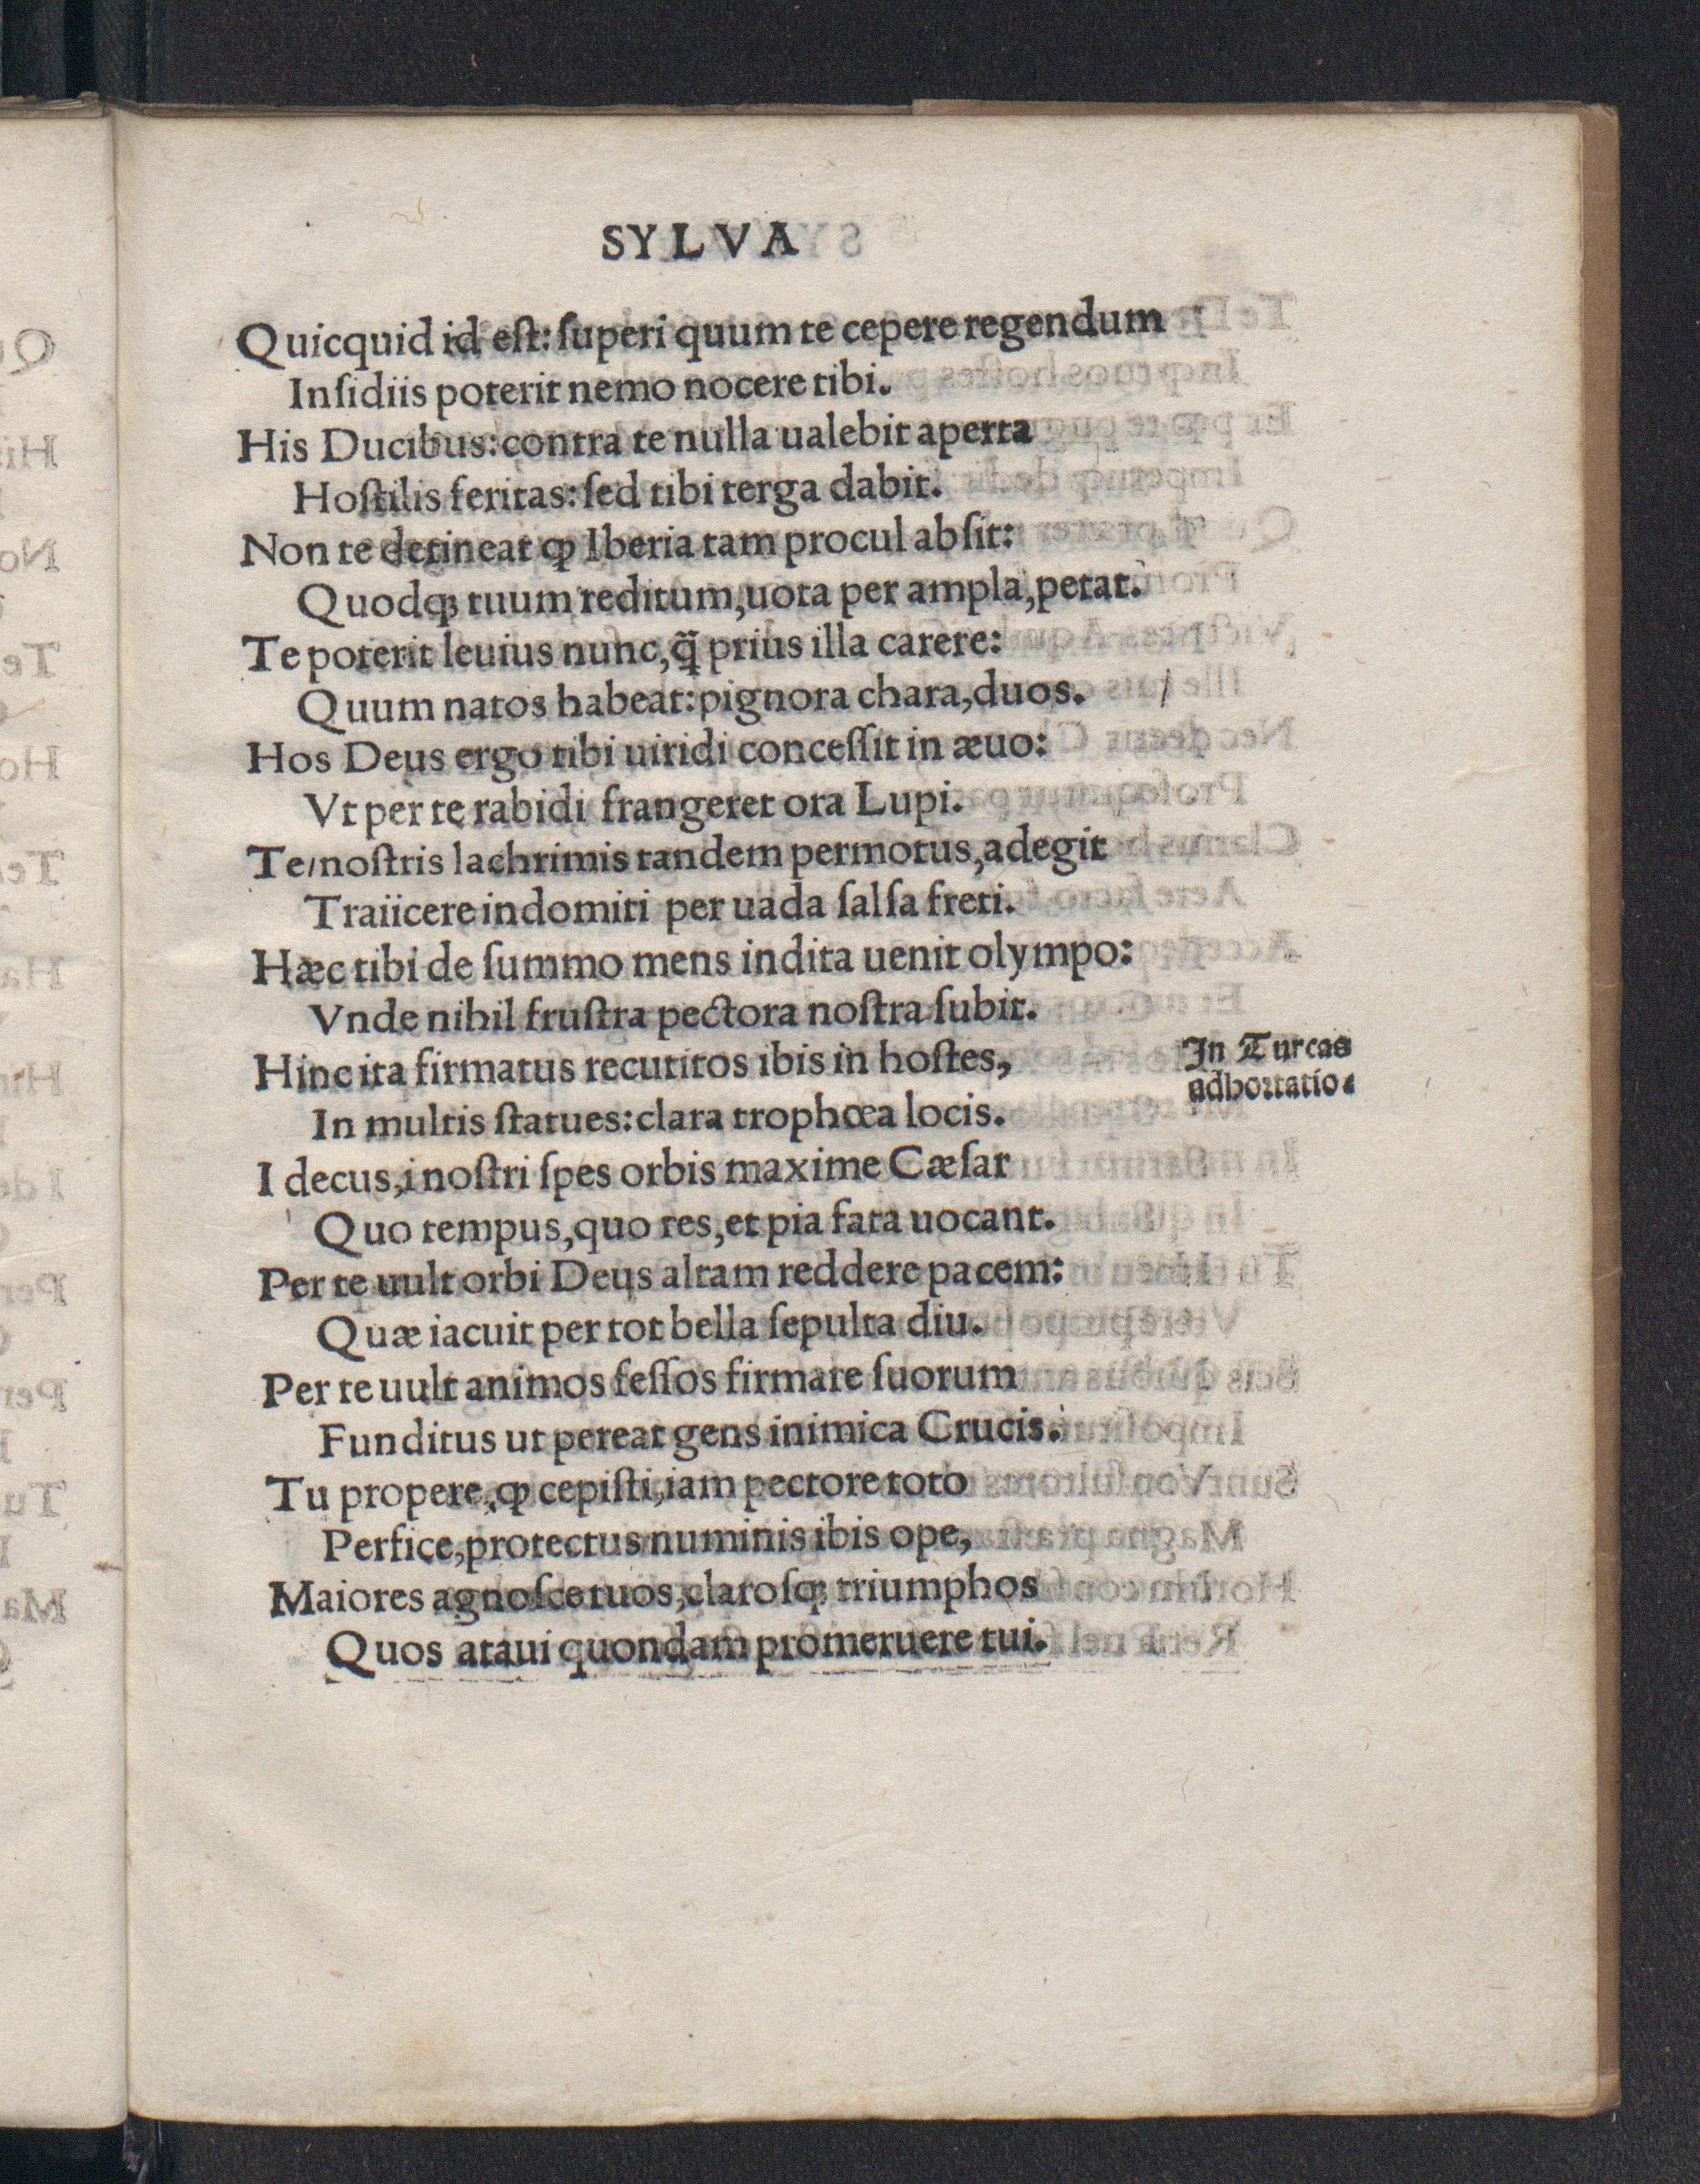 SYLVA
Quicquid id eſt: ſuperi quum te cepere regendum
Inſidiis poterit nemo nocere tibi.
His Ducibus: contra te nulla ualebit aperta
Hoſtilis feritas: ſed tibi terga dabit.
Non te detineat ꝙ Iberia tam procul abſit:
Quodqꝫ tuum reditum, uota per ampla, petat.
Te poterit leuius nunc, q̃ prius illa carere:
Quum natos habeat: pignora chara, duos.
Hos Deus ergo tibi uiridi conceſſit in æuo:
Vt per te rabidi frangeret ora Lupi.
Te/noſtris lachrimis tandem permotus, adegit
Traiicere indomiti per uada ſalſa freti.
Hæc tibi de ſummo mens indita uenit olympo:
Vnde nihil fruſtra pectora noſtra ſubit.
Hinc ita firmatus recutitos ibis in hoſtes,
In Turcas
adhortatio.
In multis ſtatues: clara trophœa locis.
I decus, i noſtri ſpes orbis maxime Cæſar
Quo tempus, quo res, et pia fata uocant.
Per te uult orbi Deus altam reddere pacem:
Quæ iacuit per tot bella ſepulta diu.
Per te uult animos feſſos firmare ſuorum
Funditus ut pereat gens inimica Crucis.
Tu propere, ꝙ cepiſti, iam pectore toto
Perfice, protectus numinis ibis ope,
Maiores agnoſce tuos, claroſqꝫ triumphos
Quos ataui quondam promeruere tui.